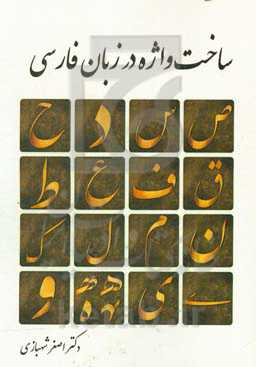 ساخت واژه در زبان فارسی
ص س د ح
ق ف ع ط
ن م ل ک
ے ی ههه و
دکتر اصغر شهبازی